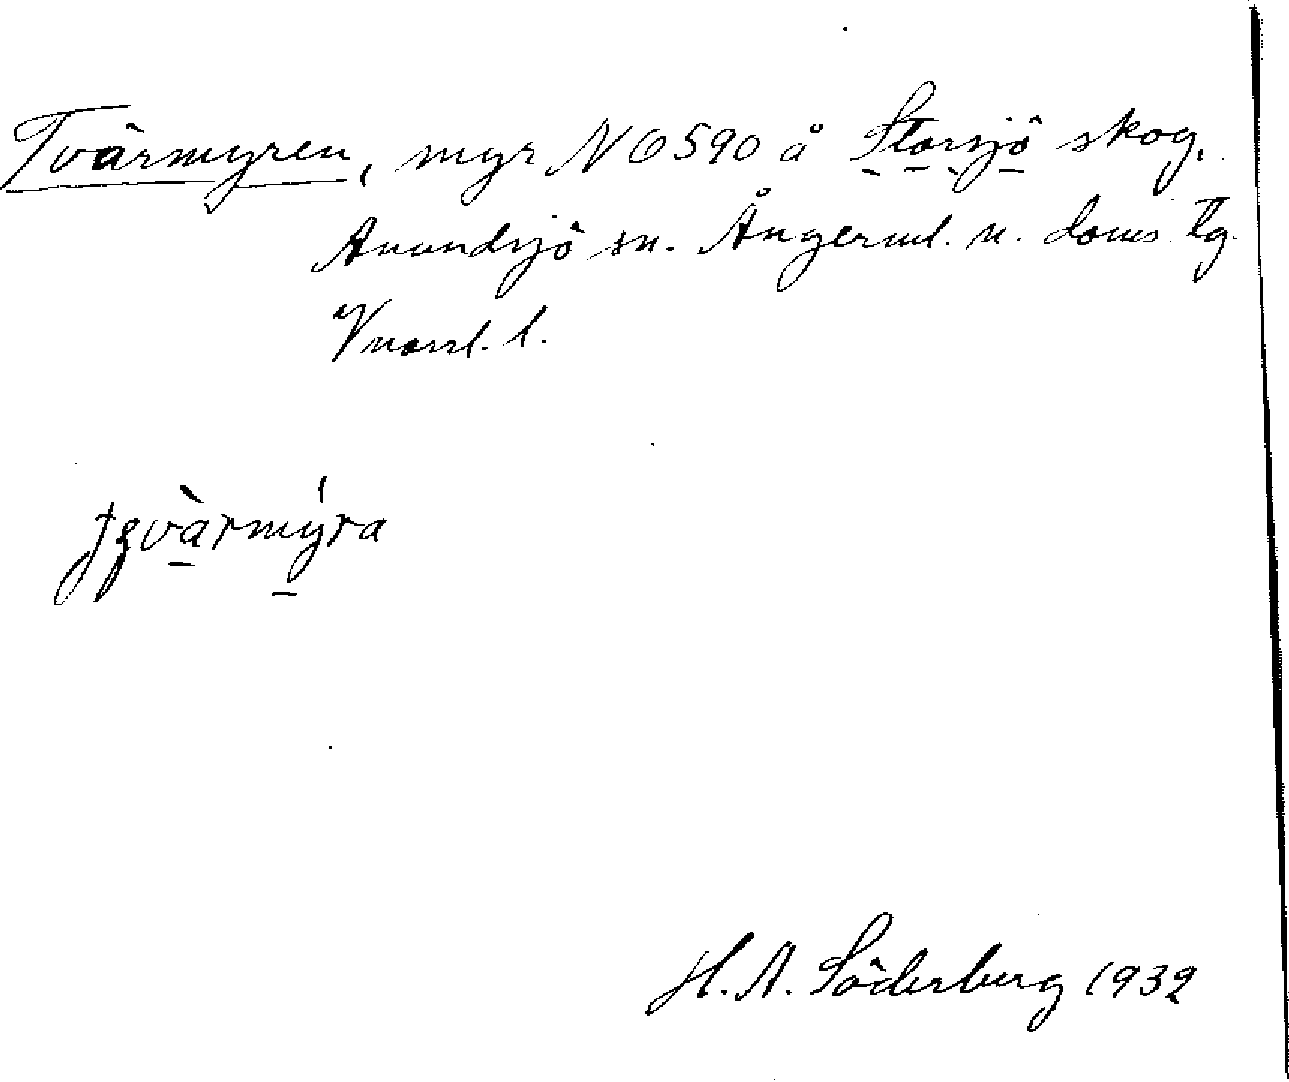 Tvärmyren, myr NO 590 å Storsjö skog,
Anundsjö sn. Ångerml. n. doms. tg.
Vnorrl. l.
tvàrmýra
H. A. Söderberg 1932